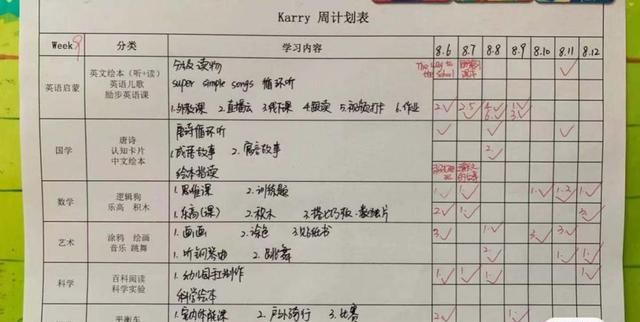 Karry 周计划表
Week 9 分类 学习内容 8.6 8.7 8.8 8.9 8.10 8.11 8.12
英语启蒙 英文绘本（听+读） 分级读物 The way to the school
英语儿歌 super simple songs 循环听
励步英语课 1.外教课 2.直播课 3.线下课 4.跟读 5.视频打卡 6.作业 2 2.5 4 6 1. 3
国学 唐诗 唐诗循环听
认知卡片 1.成语故事 2.寓言故事 2
中文绘本 绘本指读
数学 逻辑狗 1.思维课 2.训练题 1 1 1. 1.2 1
乐高 积木 1.乐高(课) 2.积木 3. 2 1 3
艺术 涂鸦 绘画 1.画画 2.涂色 3.贴纸书 3 1 3 3
音乐 跳舞 1.听钢琴曲 2.跳舞 2 1 1
科学 百科阅读 1.幼儿园手工制作 1 1 1
科学实验 科学绘本
平衡车 1.室内体能课 2.户外骑行 3.比赛 2 1.